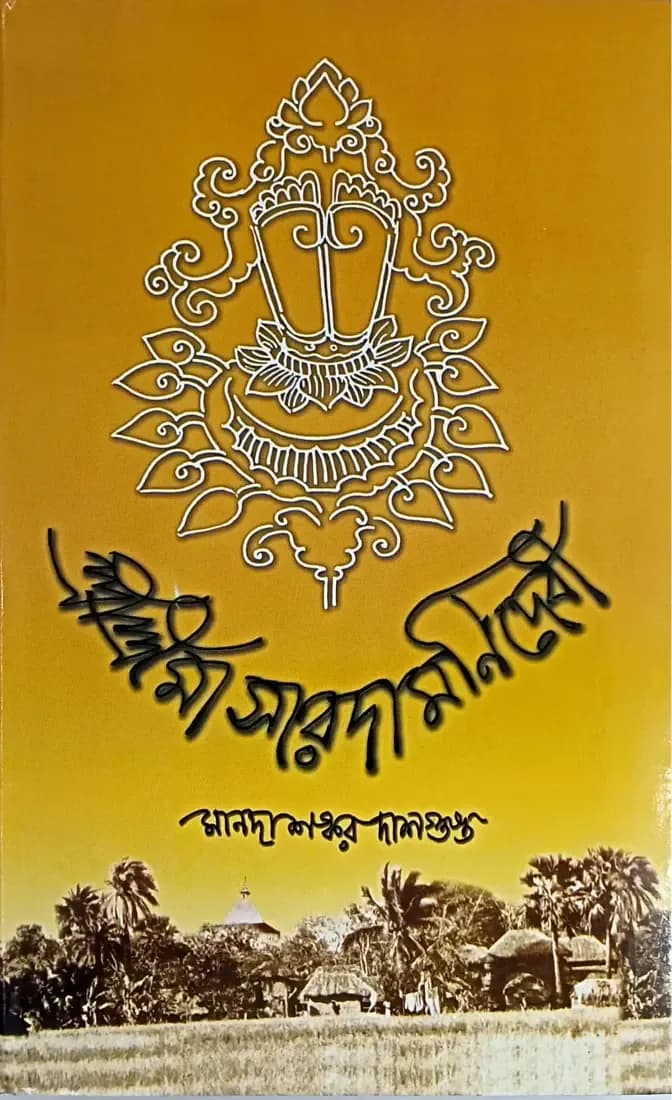 শ্রীশ্রীমা সারদামণিদেবী
মানদাশঙ্কর দাশগুপ্ত